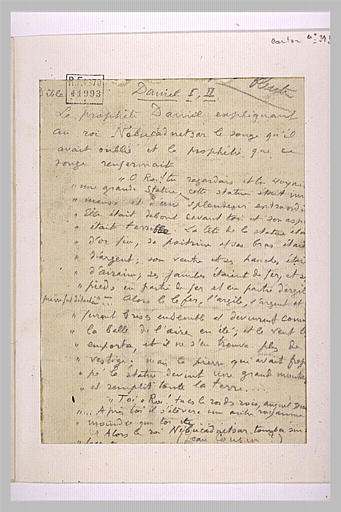 R.F. 1870
41993
Bible
Daniel I, II
Le prophète Daniel expliquant
au roi Nebucadnetsar le songe qu'il
avait oublié et la prophétie que ce
songe renfermait
" O Roi! tu regardais et tu voyais
" une grande statue, cette statue était im
" mense et d'une splendeur extraordi
" Elle était debout devant toi et son aspect
" était terrible. La tête de la statue était
" d'or fin, sa poitrine et ses bras étaient
" d'argent; son ventre et ses hanches étaient
" d'airain; ses jambes étaient de fer, et ses
" pieds en partie de fer et en partie d'argile
Alors le fer, l'argile, l'argent et
" furent brisés ensemble et devinrent comme
" la balle de l'aire en été; et le vent les
" emporta, et il ne s'en trouva plus de
" vestige; mais la pierre qui avait frap
" pé la statue devint une grande montagne
" et remplit toute la terre....
" Toi, ô Roi! tu es le roi des rois, auquel
"... Après toi il s'élèvera un autre royaume
" moindre que toi etc
" Alors le roi Nebucadnetsar tomba sur
(Jean Cousin)